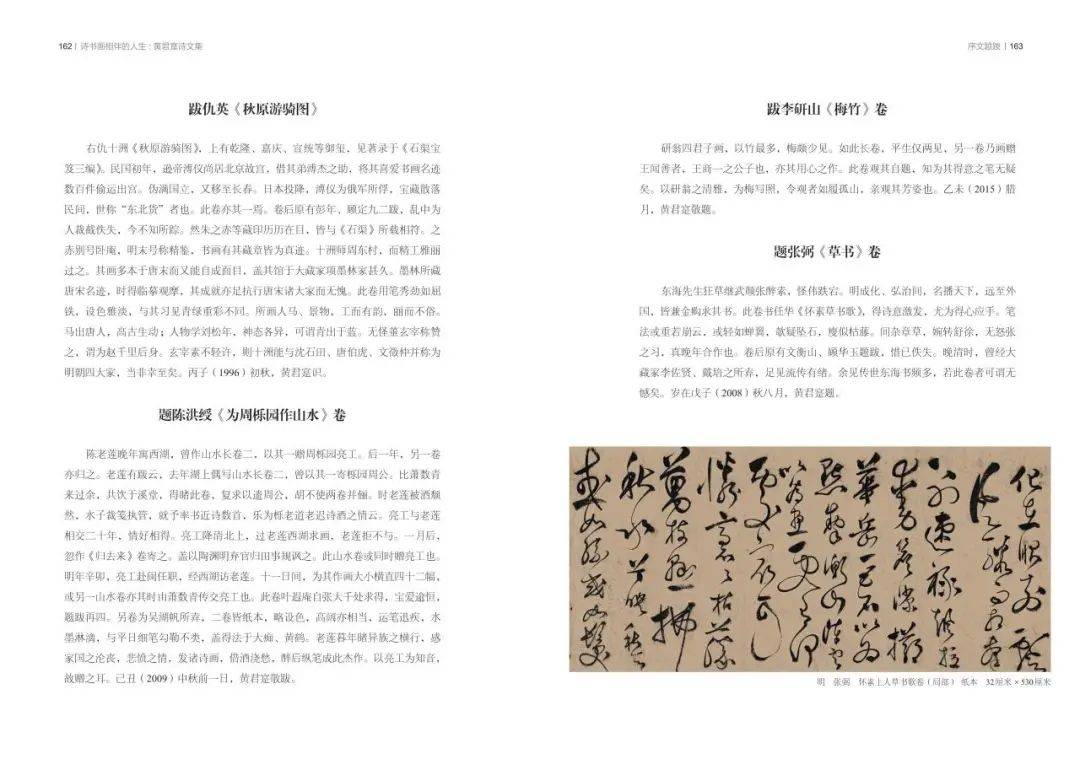 162 | 诗书画相伴的人生：黄君寔诗文集
跋仇英《秋原游骑图》
右仇十洲《秋原游骑图》，上有乾隆、嘉庆、宣统等御玺，见著录于《石渠宝
笈三编》。民国初年，逊帝溥仪尚居北京故宫，借其弟溥杰之助，将其喜爱书画名迹
数百件偷运出宫。伪满国立，又移至长春。日本投降，溥仪为俄军所俘，宝藏散落
民间，世称“东北货”者也。此卷亦其一焉。卷后原有彭年、顾定九二跋，乱中为
人裁截佚失，今不知所踪。然朱之赤等藏印历历在目，皆与《石渠》所载相符。之
赤别号卧庵，明末号称精鉴，书画有其藏章皆为真迹。十洲师周东村，而精工雅丽
过之。其画多本于唐末而又能自成面目，盖其馆于大藏家项墨林家甚久。墨林所藏
唐宋名迹，时得临摹观摩，其成就亦足抗行唐宋诸大家而无愧。此卷用笔秀劲如屈
铁，设色雅淡，与其习见青绿重彩不同。所画人马、景物，工而有韵，丽而不俗。
马出唐人，高古生动；人物学刘松年，神态各异，可谓青出于蓝。无怪董玄宰称赞
之，谓为赵千里后身。玄宰素不轻许，则十洲能与沈石田、唐伯虎、文徵仲并称为
明朝四大家，当非幸至矣。丙子（1996）初秋，黄君寔识。
题陈洪绶《为周栎园作山水》卷
陈老莲晚年寓西湖，曾作山水长卷二，以其一赠周栎园亮工。后一年，另一卷
亦归之。老莲有跋云，去年湖上偶写山水长卷二，曾以其一寄栎园周公。比萧数青
来过余，共饮于溪堂，得睹此卷，复求以遗周公，胡不使两卷并俪。时老莲被酒颓
然，水子裁笺执管，就予率书近诗数首，乐为栎老道老迟诗酒之情云。亮工与老莲
相交二十年，情好相得。亮工降清北上，过老莲西湖求画，老莲拒不与。一月后，
忽作《归去来》卷寄之。盖以陶渊明弃官归田事规讽之。此山水卷或同时赠亮工也。
明年辛卯，亮工赴闽任职，经西湖访老莲。十一日间，为其作画大小横直四十二幅，
或另一山水卷亦其时由萧数青传交亮工也。此卷叶遐庵自张大千处求得，宝爱逾恒，
题跋再四。另卷为吴湖帆所弆，二卷皆纸本，略设色，高阔亦相当，运笔迅疾，水
墨淋漓，与平日细笔勾勒不类，盖得法于大痴、黄鹤。老莲暮年睹异族之横行，感
家国之沦丧，悲愤之情，发诸诗画，借酒浇愁，醉后纵笔成此杰作。以亮工为知音，
故赠之耳。己丑（2009）中秋前一日，黄君寔敬跋。
序文题跋 | 163
跋李研山《梅竹》卷
研翁四君子画，以竹最多，梅颇少见。如此长卷，平生仅两见，另一卷乃画赠
王闻善者，王商一之公子也，亦其用心之作。此卷观其自题，知为其得意之笔无疑
矣。以研翁之清雅，为梅写照，令观者如履孤山，亲观其芳姿也。乙未（2015）腊
月，黄君寔敬题。
题张弼《草书》卷
东海先生狂草继武颠张醉素，怪伟跌宕。明成化、弘治间，名播天下，远至外
国，皆兼金购求其书。此卷书任华《怀素草书歌》，得诗意激发，尤为得心应手。笔
法或重若崩云，或轻如蝉翼，欹疑坠石，瘦似枯藤。间杂章草，婉转舒徐，无怒张
之习，真晚年合作也。卷后原有文衡山、顾华玉题跋，惜已佚失。晚清时，曾经大
藏家李佐贤、戴培之所弆，足见流传有绪。余见传世东海书颇多，若此卷者可谓无
憾矣。岁在戊子（2008）秋八月，黄君寔题。
明 张弼 怀素上人草书歌卷（局部） 纸本 32厘米×530厘米